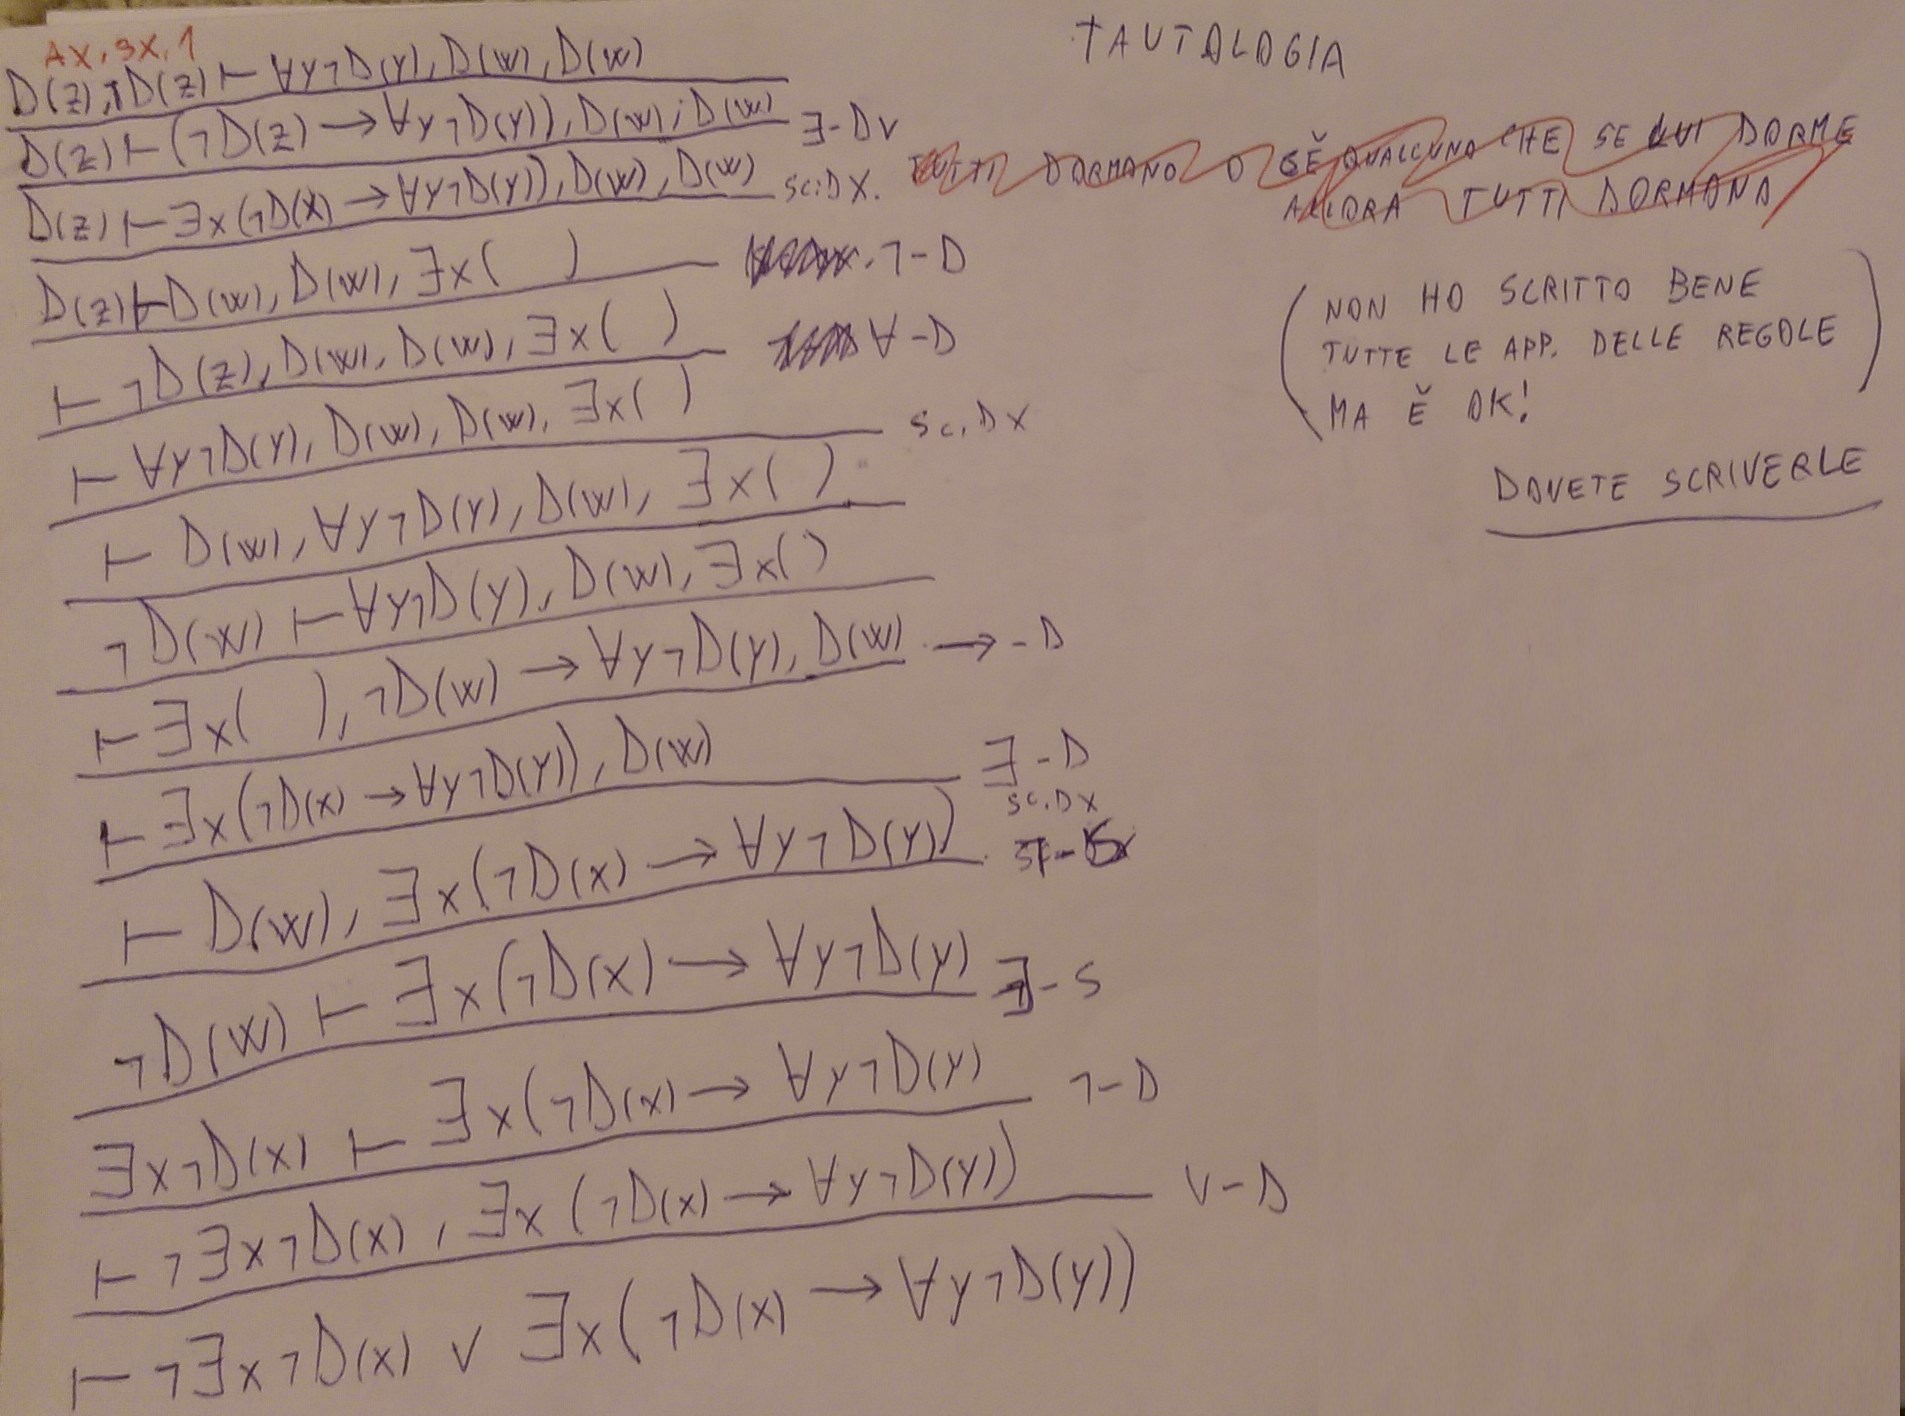 AX. SX. 1
D(z), ¬D(z) ⊢ ∀y¬D(y), D(w), D(w)
D(z) ⊢ (¬D(z) → ∀y¬D(y)), D(w), D(w) ∃-DV
D(z) ⊢ ∃x(¬D(x) → ∀y¬D(y)), D(w), D(w) SC.DX.
D(z) ⊢ D(w), D(w), ∃x( ) ¬-D
⊢ ¬D(z), D(w), D(w), ∃x( ) ∀-D
⊢ ∀y¬D(y), D(w), D(w), ∃x( ) SC.DX
⊢ D(w), ∀y¬D(y), D(w), ∃x( )
¬D(w) ⊢ ∀y¬D(y), D(w), ∃x( )
⊢ ∃x( ), ¬D(w) → ∀y¬D(y), D(w) →-D
⊢ ∃x(¬D(x) → ∀y¬D(y)), D(w) ∃-D
SC.DX
⊢ D(w), ∃x(¬D(x) → ∀y¬D(y))
¬D(w) ⊢ ∃x(¬D(x) → ∀y¬D(y) ∃-S
∃x¬D(x) ⊢ ∃x(¬D(x) → ∀y¬D(y) ¬-D
⊢ ¬∃x¬D(x), ∃x(¬D(x) → ∀y¬D(y)) V-D
⊢ ¬∃x¬D(x) ∨ ∃x(¬D(x) → ∀y¬D(y))
TAUTOLOGIA
TUTTI DORMANO O C'È QUALCUNO CHE SE LUI DORME
ALLORA TUTTI DORMONO
(NON HO SCRITTO BENE
TUTTE LE APP. DELLE REGOLE
MA È OK!)
DOVETE SCRIVERLE